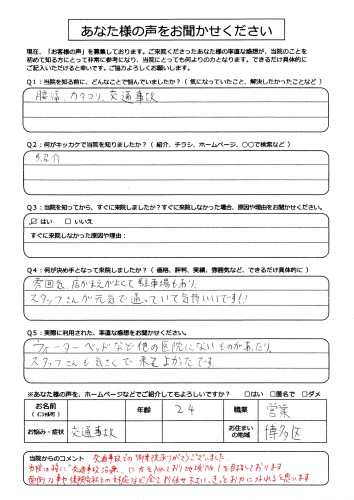 あなた様の声をお聞かせください
現在、「お客様の声」を募集しております。ご来院くださったあなた様の率直な感想が、当院のことを
初めて知る方にとって非常に参考になり、当院にとっても何よりの力となります。できるだけ具体的に
ご記入いただけると幸いです。ご協力よろしくお願いします。
Q1:当院を知る前に、どんなことで悩んでいましたか?(気になっていたこと、解決したかったことなど)
腰痛、カタコリ、交通事故
Q2:何がキッカケで当院を知りましたか?(紹介、チラシ、ホームページ、〇〇で検索など)
紹介
Q3:当院を知ってから、すぐに来院しましたか?すぐに来院しなかった場合、原因や理由をお聞かせください。
☑はい □いいえ
すぐに来院しなかった原因や理由:
Q4:何が決め手となって来院しましたか?(価格、評判、実績、雰囲気など、できるだけ具体的に)
雰囲気、店がまえがよくて駐車場もあり、
スタッフさんが元気で通っていて気持いいです!!
Q5:実際に利用された、率直な感想をお聞かせください。
ウォーターベッドなど他の医院にないものがあったり、
スタッフさんも気さくで来てよかったです。
※あなた様の声を、ホームページなどでご紹介してもよろしいですか? □はい □匿名で □ダメ
お名前
(イニシャル可)
年齢
24
職業
営業
お悩み・症状
交通事故
お住まい
の地域
博多区
当院からのコメント 交通事故での御来校ありがとうございました。
当院は特に「交通事故治療」に力を入れており地域No.1を目指しております
面倒な事や保険会社との対応など全てお任せ下さい。きっとお力になれると思います